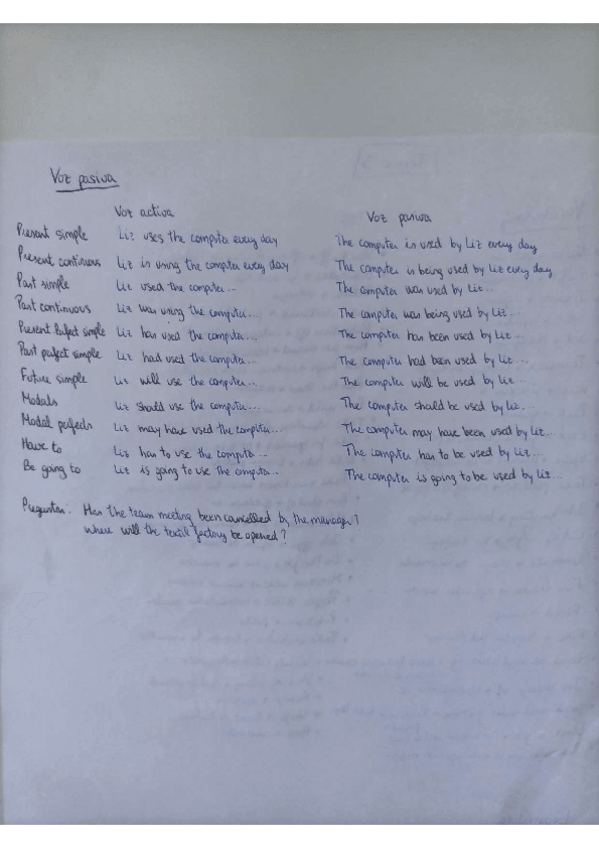 Voz pasiva
Voz activa Voz pasiva
Present simple Liz uses the computer every day The computer is used by Liz every day
Present continuous Liz is using the computer every day The computer is being used by Liz every day
Past simple Liz used the computer... The computer was used by Liz...
Past continuous Liz was using the computer... The computer was being used by Liz...
Present Perfect simple Liz has used the computer... The computer has been used by Liz...
Past perfect simple Liz had used the computer... The computer had been used by Liz...
Future simple Liz will use the computer... The computer will be used by Liz...
Modals Liz should use the computer... The computer should be used by Liz...
Modal perfects Liz may have used the computer... The computer may have been used by Liz...
Have to Liz has to use the computer... The computer has to be used by Liz...
Be going to Liz is going to use the computer... The computer is going to be used by Liz...
Preguntas: Has the team meeting been cancelled by the manager?
where will the textil factory be opened?